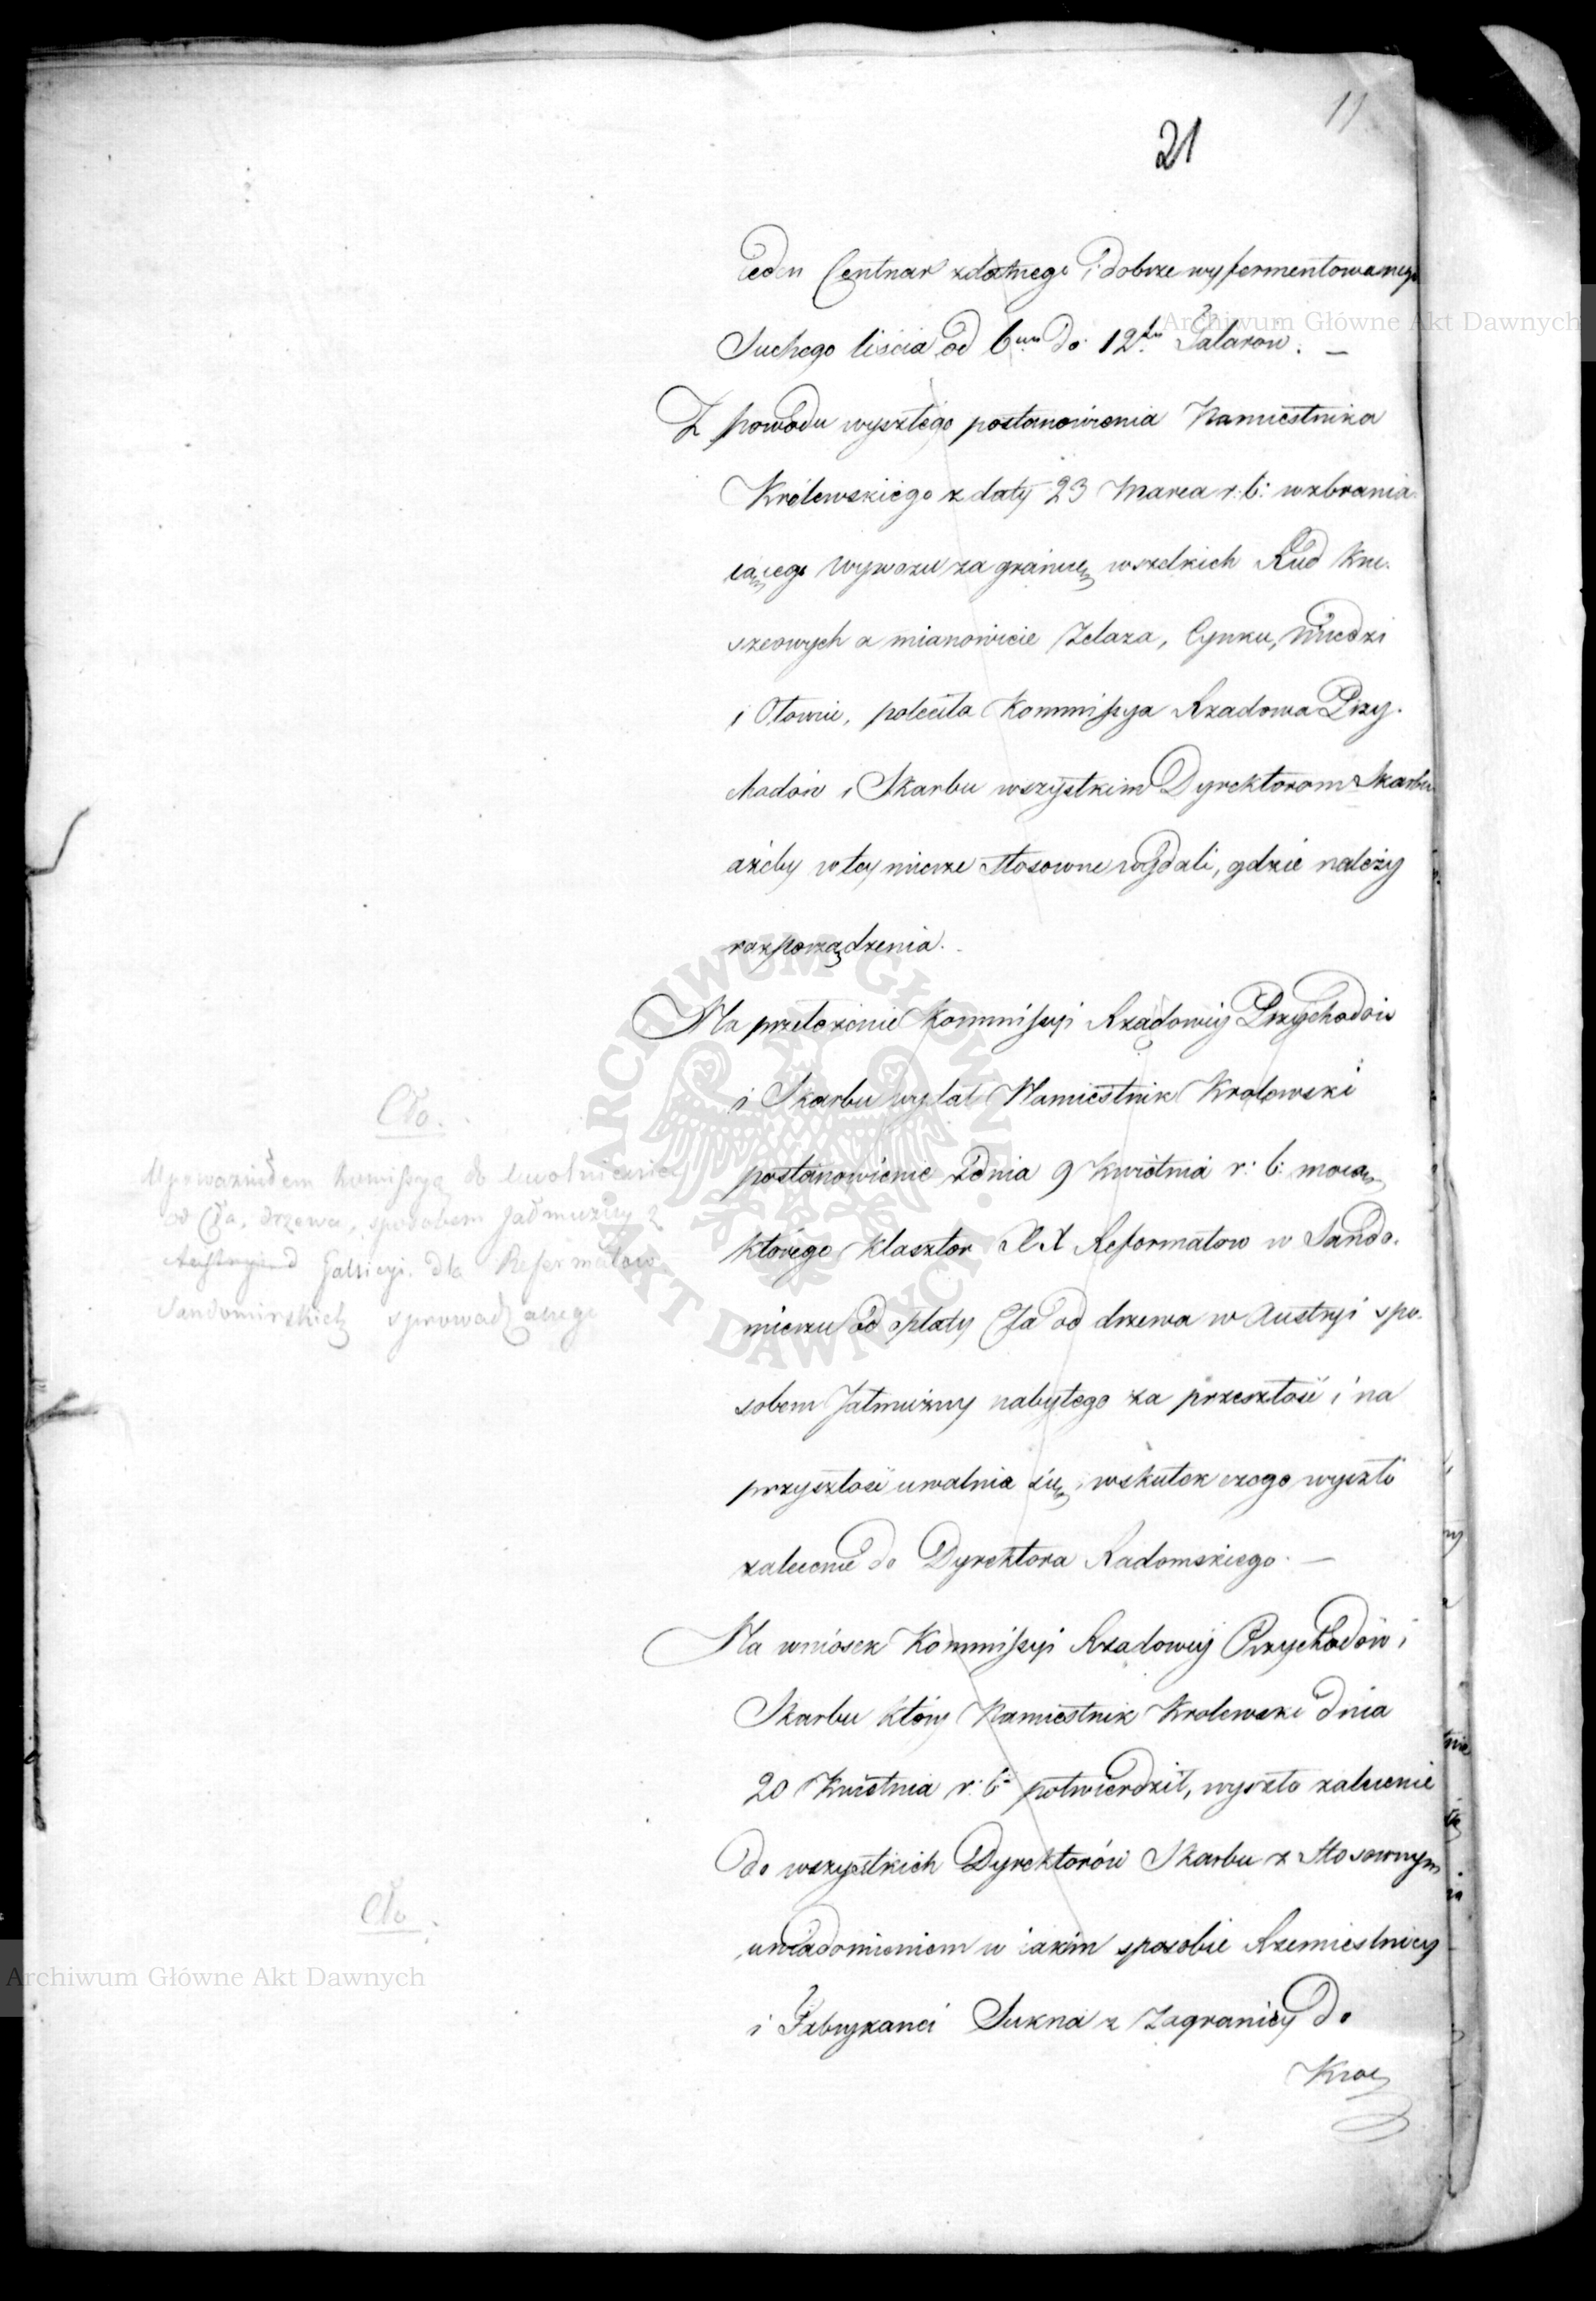 11
21
ieden Centnar zdatnego i dobrze wyfermentowanego
Suchego liścia od 6ciu do 12tu Talarow. —
Z powodu wyszłego postanowienia Namiestnika
Królewskiego z daty 23 Marca r: b: wzbrania-
iącego wywozu za granicę wszelkich Rud Kru-
szcowych a mianowicie Żelaza, Cynku, Miedzi
i Ołowiu, poleciła Kommissya Rządowa Przy-
chodów i Skarbu wszystkim Dyrektorom Skarbu
ażeby w tey mierze stosowne wydali, gdzie należy
rozporządzenia.
Na przełożenie Kommissyi Rządowey Przychodów
i Skarbu wydał Namiestnik Krolewski
postanowienie z dnia 9 Kwietnia r: b: mocą
którego Klasztor XX Reformatow w Sando-
mierzu od opłaty Cła od drzewa w Austryi spo-
sobem Jałmużny nabytego za przeszłość i na
przyszłość uwalnia się, wskutek czego wyszło
zalecenie do Dyrektora Radomskiego. —
Na wniosek Kommissyi Rządowey Przychodów i
Skarbu który Namiestnik Krolewski dnia
20 Kwietnia r: b: potwierdził, wyszło zalecenie
do wszystkich Dyrektorów Skarbu z stosownym
uwiadomieniem w iakim sposobie Rzemieslnicy
i Fabrykanci Sukna z Zagranicy do
Kraj
Cło.
Upoważniłem Komissyą do uwolnienia
od Cła, drzewa, sposobem Jałmużny z
Galicyi dla Reformatow
Sandomirskich sprowadzanego
Cło.
Archiwum Główne Akt Dawnych
ARCHIWUM GŁÓWNE AKT DAWNYCH
Archiwum Główne Akt Dawnych